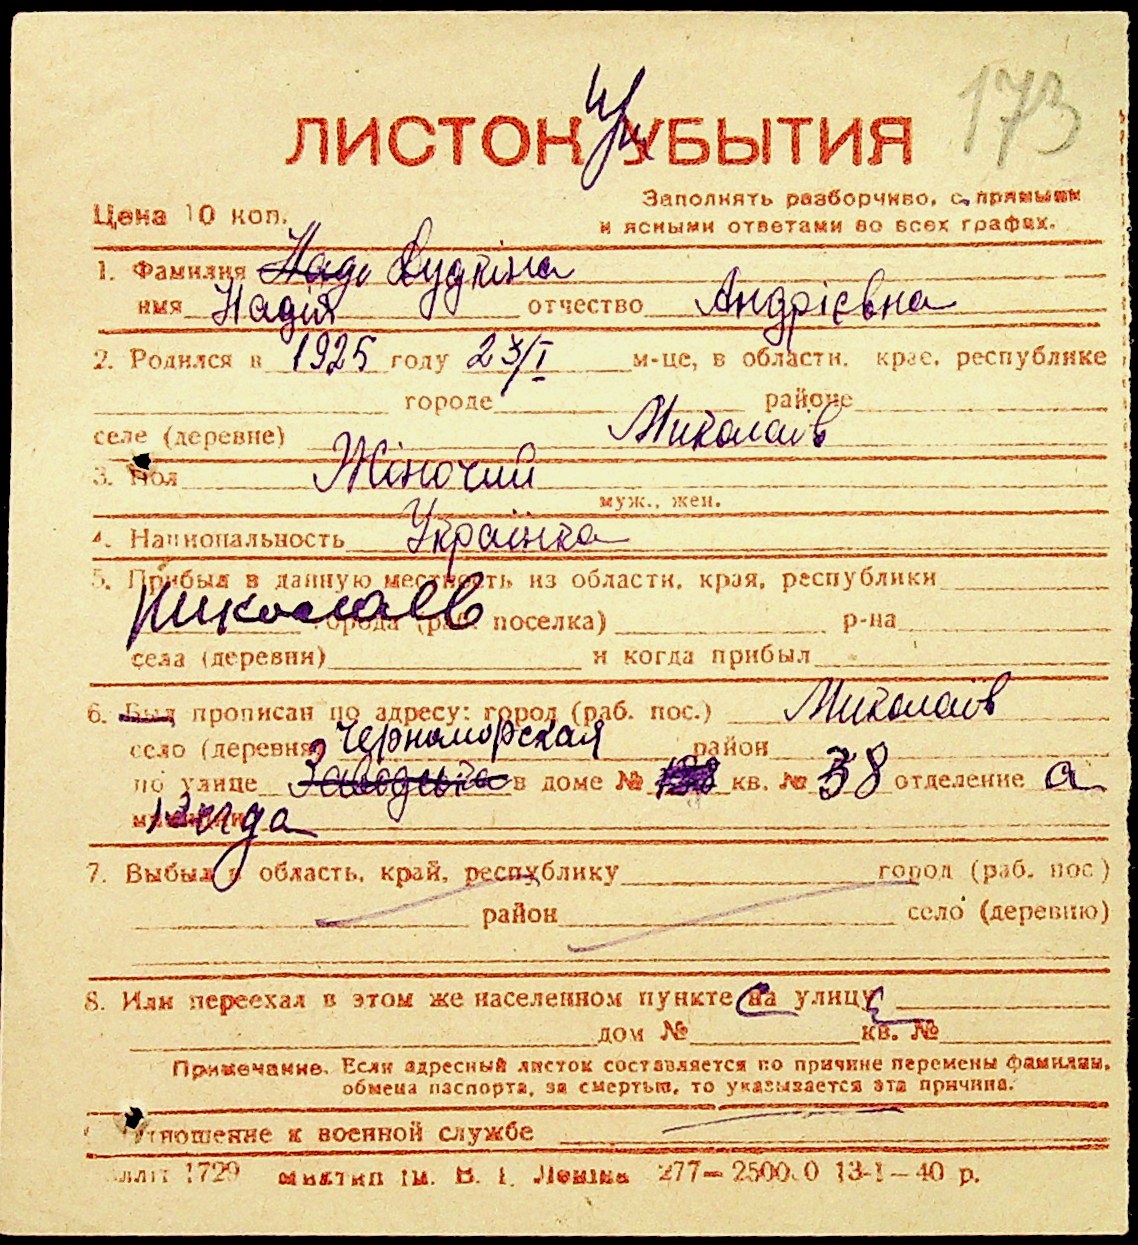 173
ЛИСТОК УБЫТИЯ
Заполнять разборчиво, с прямыми
Цена 10 коп.
и ясными ответами во всех графах.
1. Фамилия Надi Дудкіна
имя Надія отчество Андрієвна
2. Родился в 1925 году 23/I м-це, в области, крае, республике
городе районе
селе (деревне) Миколаів
3. Пол Жіночий
муж., жен.
4. Национальность Українка
5. Прибыл в данную местность из области, края, республики
Николаев города (раб. поселка) р-на
села (деревни) и когда прибыл
6. Был прописан по адресу: город (раб. пос.) Миколаїв
село (деревня) Черноморская район
по улице Заводська в доме № кв. № 38 отделение а
милиции
7. Выбыл в область, край, республику город (раб. пос.)
район село (деревню)
8. Или переехал в этом же населенном пункте на улицу
дом № кв. №
Примечание. Если адресный листок составляется по причине перемены фамилии,
обмена паспорта, за смертью, то указывается эта причина.
Отношение к военной службе
1729 ім. В. І. Леніна 277— 13-1—40 р.